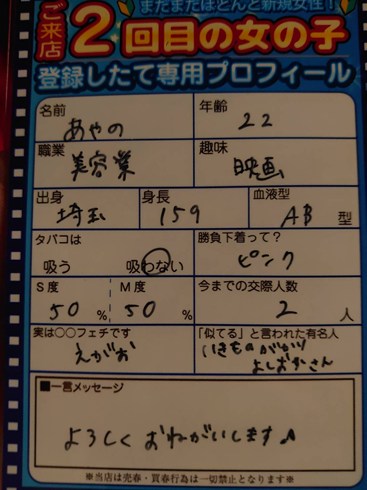 まだまだほとんど新規女性！
ご来店2回目の女の子
登録したて専用プロフィール
名前
あやの
年齢
22
職業
美容業
趣味
映画
出身
埼玉
身長
159
血液型
AB 型
タバコは
吸う 吸わない
勝負下着って？
ピンク
S度
50 %
M度
50 %
今までの交際人数
2 人
実は〇〇フェチです
えがお
「似てる」と言われた有名人
いきものがかり
よしおかさん
■一言メッセージ
よろしくおねがいします♪
※当店は売春・買春行為は一切禁止となります※